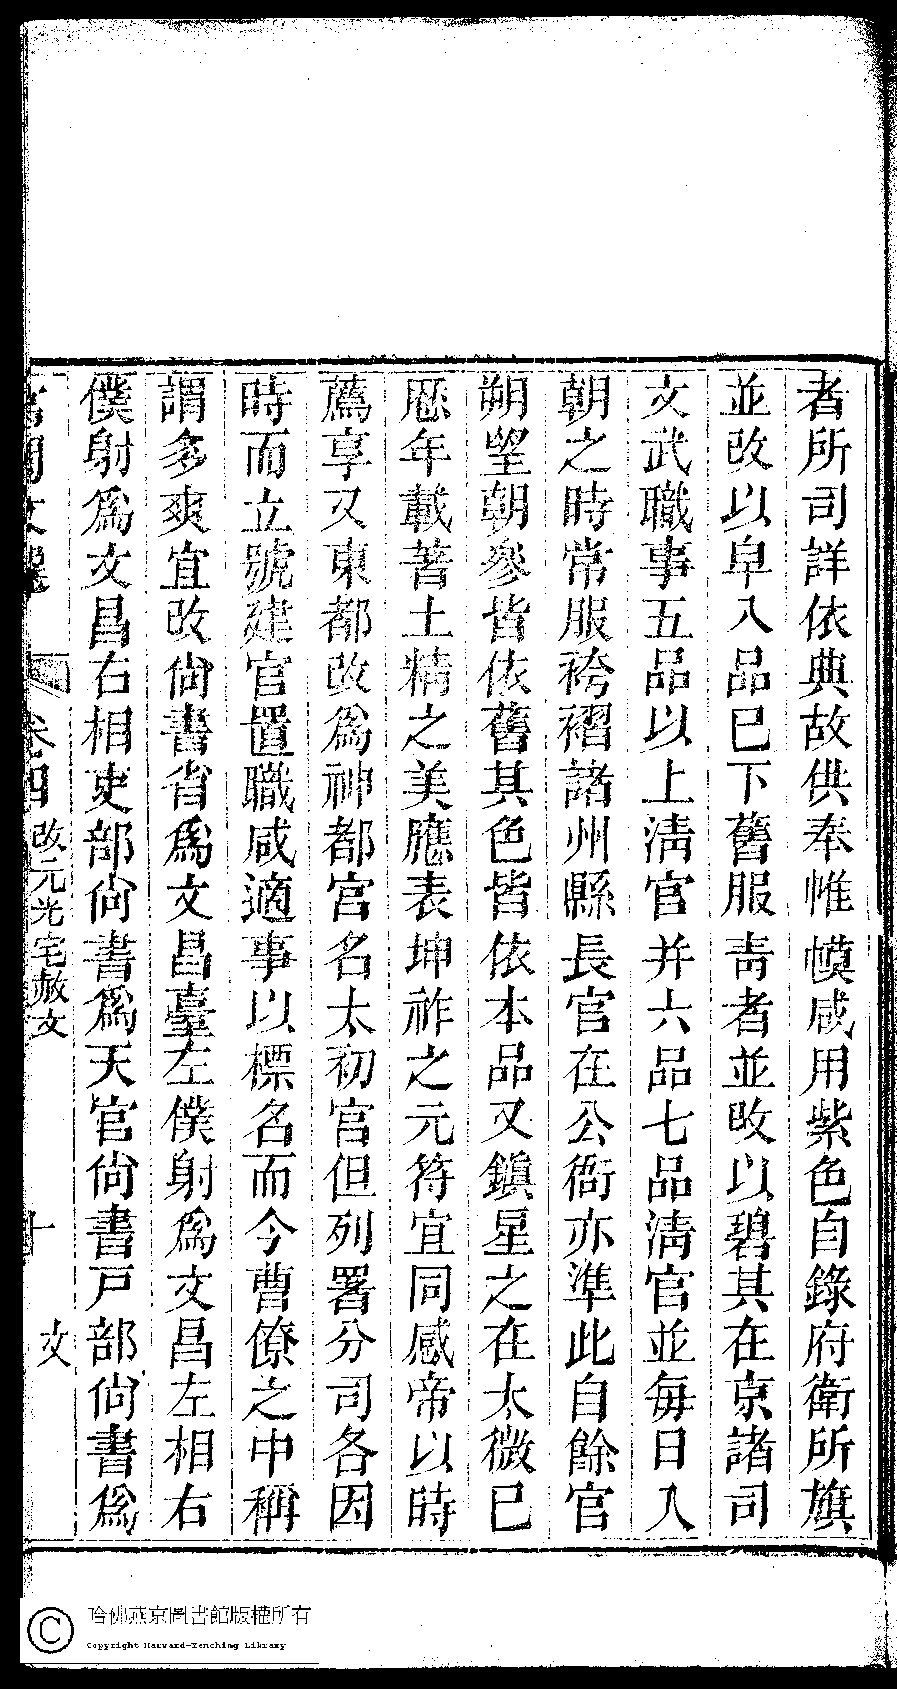 者所司詳依典故供奉帷幙咸用紫色自錄府衛所旗
並改以皁入品已下舊服靑者並改以碧其在京諸司
文武職事五品以上淸官并六品七品淸官並每日入
朝之時常服袴褶諸州縣長官在公衙亦準此自餘官
朔望朝參皆依舊其色皆依本品又鎭星之在太微已
歷年載著土精之美應表坤祚之元符宜同感帝以時
薦享又東都改爲神都宮名太初官但列署分司各因
時而立號建官置職咸適事以標名而今曹僚之中稱
謂多爽宜改尙書省爲文昌臺左僕射爲文昌左相右
僕射爲文昌右相吏部尙書爲天官尙書戸部尙書爲
卷四 改元光宅赦文 十 文
哈佛燕京圖書館版權所有
Copyright Harvard-Yenching Library